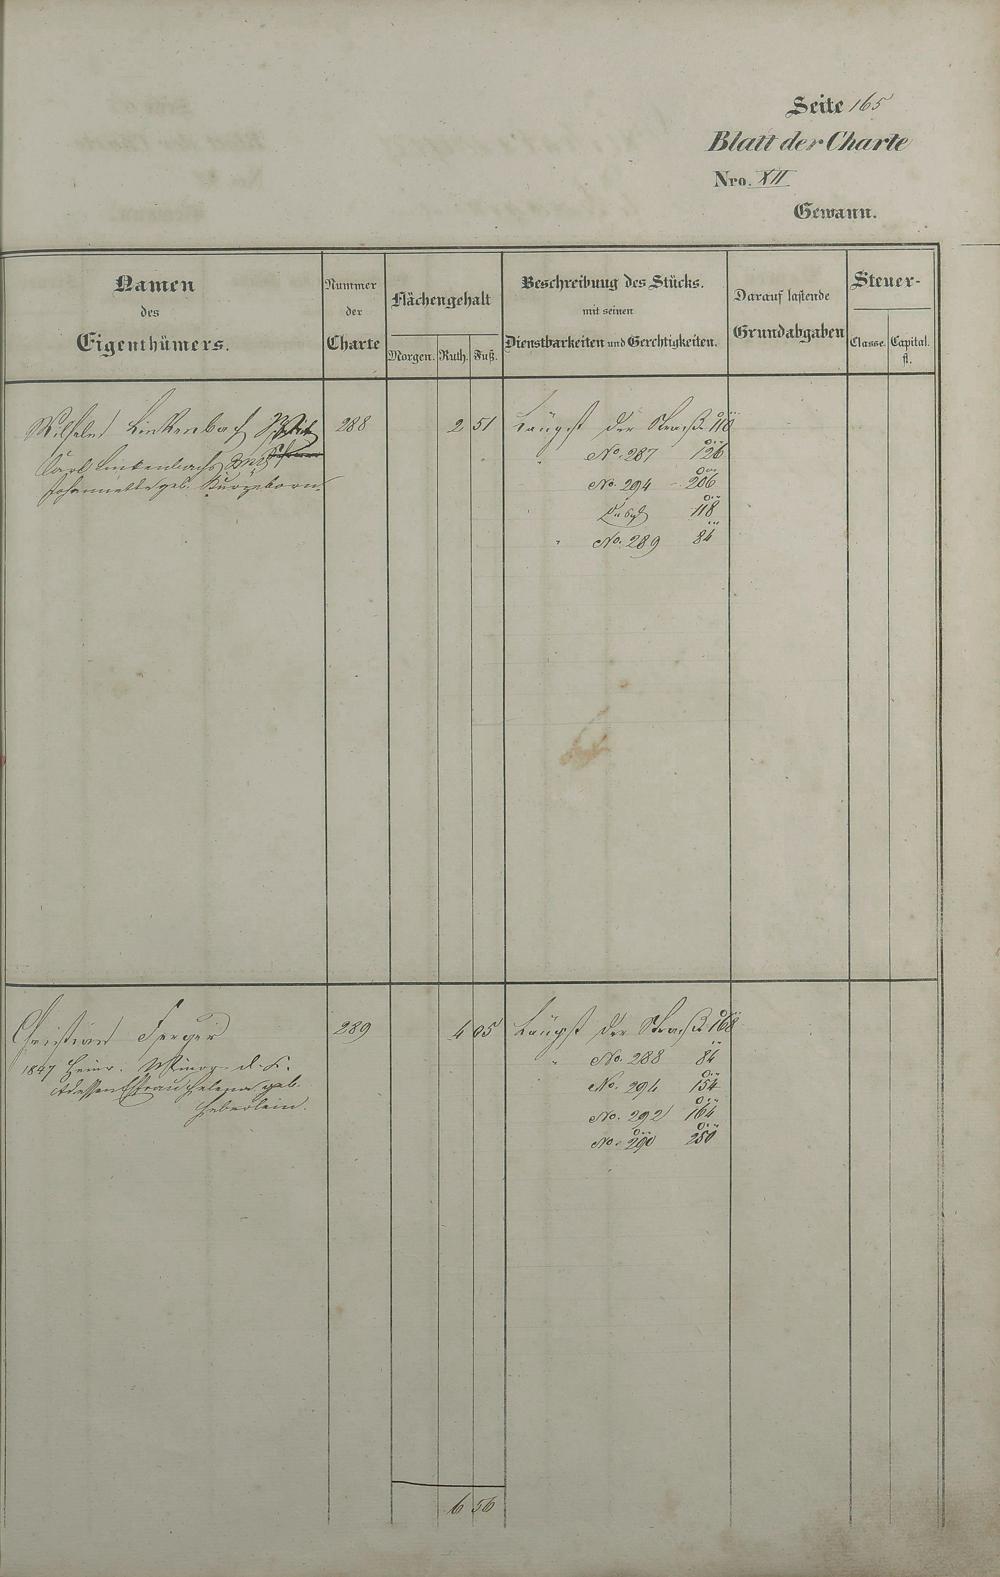 Seite 165
Blatt der Charte
Nro. XII
Gewann.
Namen
des
Eigenthümers.
Nummer
der
Charte
Flächengehalt
Morgen. Ruth. Fuß.
Beschreibung des Stücks.
mit seinen
Dienstbarkeiten und Gerechtigkeiten.
Darauf lastende
Grundabgaben
Steuer-
Classe. Capital.
fl.
Wilhelm Linkenbach 288 2 51 Längst der Straße 118
Carl Linkenbachs " No. 287 126
Johannette geb. Kurzeborn. No. 294 206
118
" No. 289 84
Christian Ferger 289 4 05 Längst der Straße 168
1847 Heinr. " No. 288 84
dessen Ehefrau Helena geb. No. 294 154
Heberlein. No. 292 164
No. 290 250
6 56